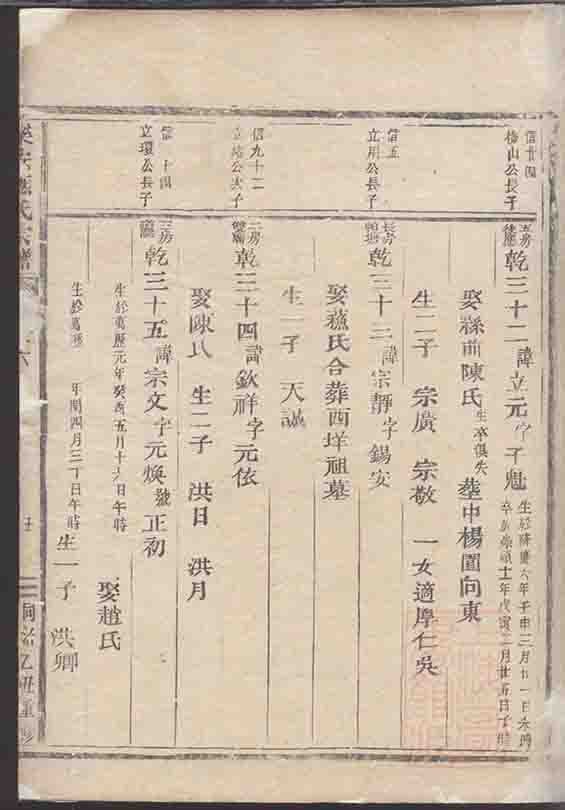 信廿四
公長子
房
乾三十二 諱立元字子魁
生於隆慶六年壬申三月廿一日未時
卒於崇禎十一年戊寅二月廿五日丁時
娶縣前陳氏 生卒俱失 塟中楊園向東
生二子 宗廣 宗敬 一女適厚仁吳
信五
立川公長子
長房
乾三十三 諱宗靜字錫安
娶蘓氏合葬西垟祖墓
生一子 天誠
信九十二
公次子
二房
乾三十四 諱欽祥字元依
娶陳氏 生二子 洪日 洪月
信一十四
立環公長子
三房
乾三十五 諱宗文字元煥號正初
生於萬歷元年癸酉五月十六日午時
娶趙氏
生於萬歷 年閏四月三十日午時
生一子 洪卿
氏宗譜
同治乙丑重修